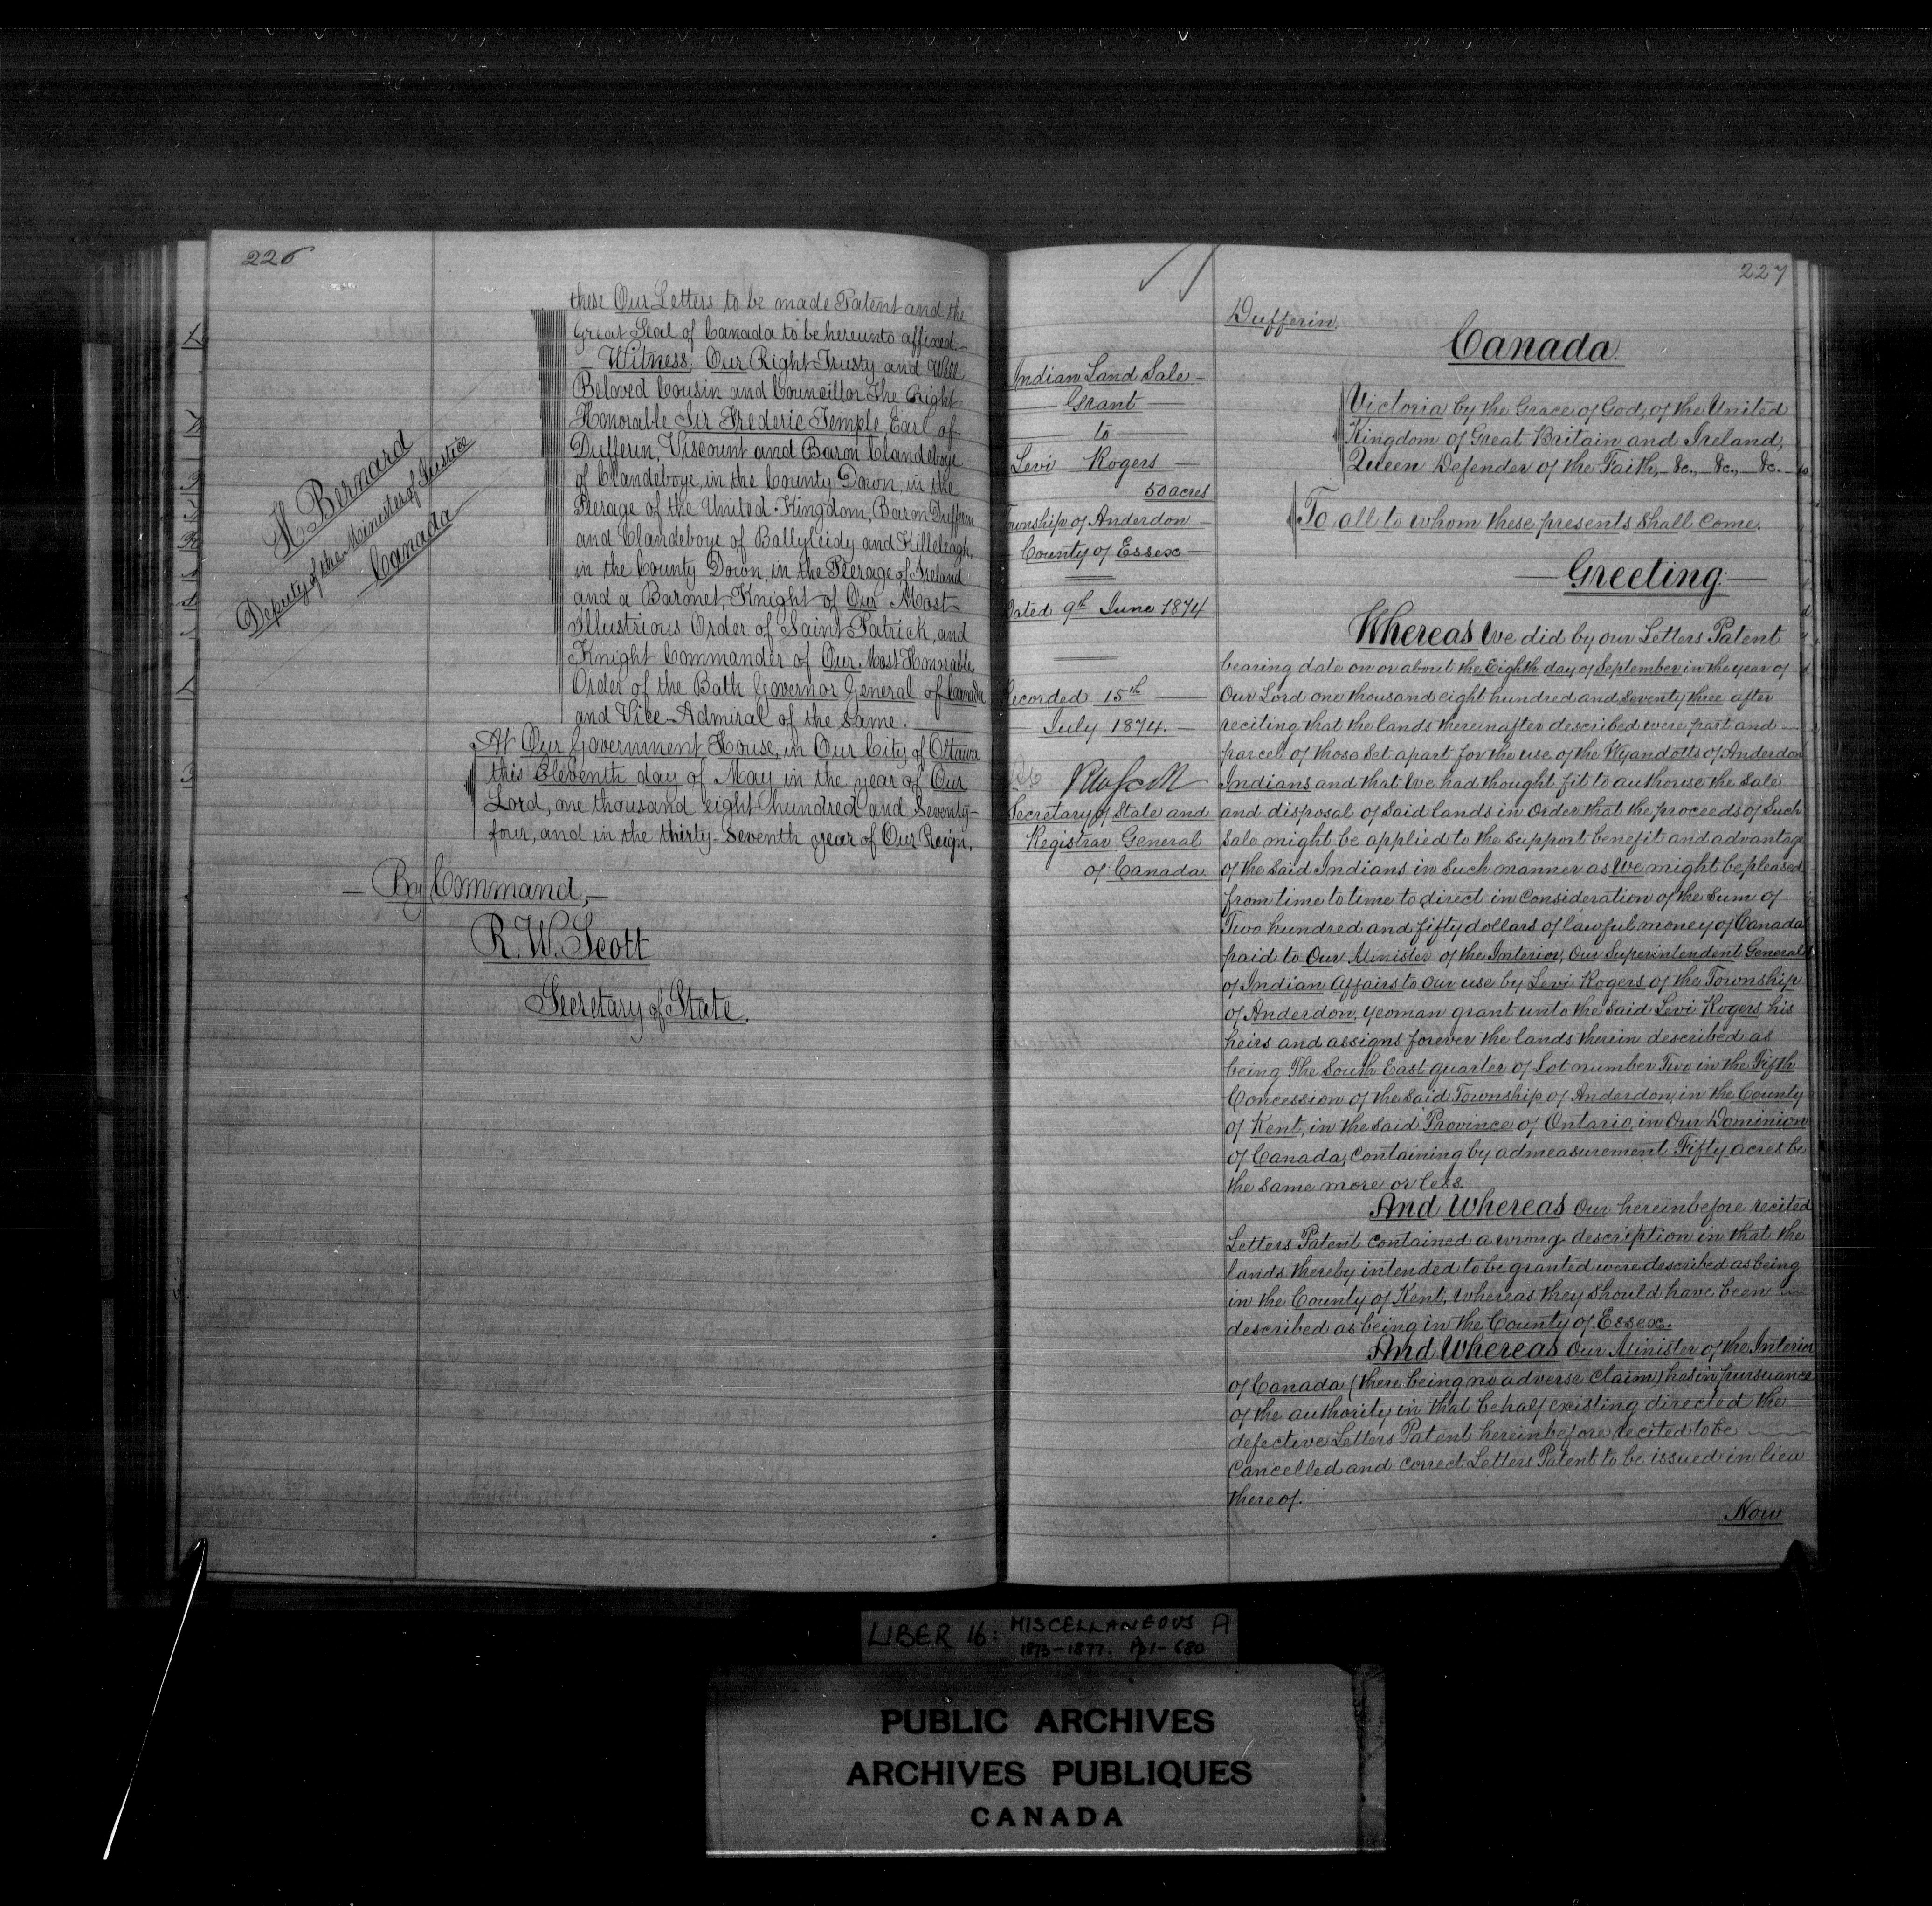 226
these Our Letters to be made Patent and the
Great Seal of Canada to be hereunto affixed.—
Witness, Our Right Trusty and Well
Beloved Cousin and Councillor The Right
Honorable Sir Frederic Temple, Earl of
Dufferin, Viscount and Baron Clandeboye
of Clandeboye, in the County Down, in the
Peerage of the United Kingdom, Baron Dufferin
and Clandeboye of Ballyleidy and Killeleagh,
in the County Down, in the Peerage of Ireland
and a Baronet, Knight of Our Most
Illustrious Order of Saint Patrick, and
Knight Commander of Our Most Honorable
Order of the Bath Governor General of Canada
and Vice-Admiral of the same.
At Our Government House, in Our City of Ottawa
this Eleventh day of May in the year of Our
Lord, one thousand eight hundred and Seventy-
four, and in the thirty-seventh year of Our Reign.
H Bernard
Deputy of the Minister of Justice
Canada
— By Command,—
R. W. Scott
Secretary of State.
227
Indian Land Sale —
Grant —
to
Levi Rogers —
50 acres
Township of Anderdon —
County of Essex —
Dated 9th June 1874
Recorded 15th —
July 1874. —
RWScott
Secretary of State and
Registrar General
of Canada
Dufferin.
Canada.
Victoria by the Grace of God, of the United
Kingdom of Great Britain and Ireland,
Queen Defender of the Faith,— &c., — &c., — &c. —
To all to whom these presents shall come.
— Greeting: —
Whereas We did by our Letters Patent
bearing date on or about the Eighth day of September in the year of
Our Lord one thousand eight hundred and seventy three after
reciting that the lands thereinafter described were part and —
parcel of those Set apart for the use of the Wyandotts of Anderdon
Indians and that We had thought fit to authorise the Sale
and disposal of Said lands in Order that the proceeds of Such
Sale might be applied to the Support benefit and advantage
of the Said Indians in Such manner as We might be pleased
from time to time to direct in Consideration of the Sum of
Two hundred and fifty dollars of lawful money of Canada
paid to Our Minister of the Interior, Our Superintendent General
of Indian Affairs to Our use by Levi Rogers of the Township
of Anderdon, yeoman grant unto the Said Levi Rogers, his
heirs and assigns forever the lands therein described as
being The South East quarter of Lot number Two in the Fifth
Concession of the Said Township of Anderdon, in the County
of Kent, in the Said Province of Ontario, in Our Dominion
of Canada, Containing by admeasurement Fifty acres be
the same more or less.
And Whereas Our hereinbefore recited
Letters Patent Contained a wrong description in that the
lands thereby intended to be granted were described as being
in the County of Kent, Whereas they Should have been —
described as being in the County of Essex.
And Whereas Our Minister of the Interior
of Canada (there being no adverse Claim) has in pursuance
of the authority in that behalf existing directed the
defective Letters Patent hereinbefore recited to be —
Cancelled and Correct Letters Patent to be issued in lieu
thereof.
Now
LIBER 16: MISCELLANEOUS A
1873-1877. Pp 1-680
PUBLIC ARCHIVES
ARCHIVES PUBLIQUES
CANADA